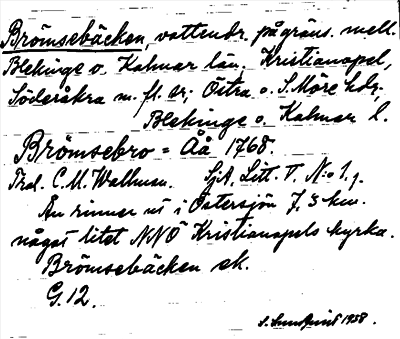 Brömsebäcken, vattendr. på gräns. mell.
Blekinge o. Kalmar län. Kristianopel,
Söderåkra m. fl. sr; Östra o. S. Möre hdr,
Blekinge o. Kalmar l.
Brömsebro = Åå 1768.
Tral. C. M. Wallman. SjA. Litt. T. N:o 1.
Ån rinner ut i Östersjön 7,5 km.
något litet NNÖ Kristianopels kyrka.
Brömsebäcken ek.
G. 12.
S. Sundquist 1938.